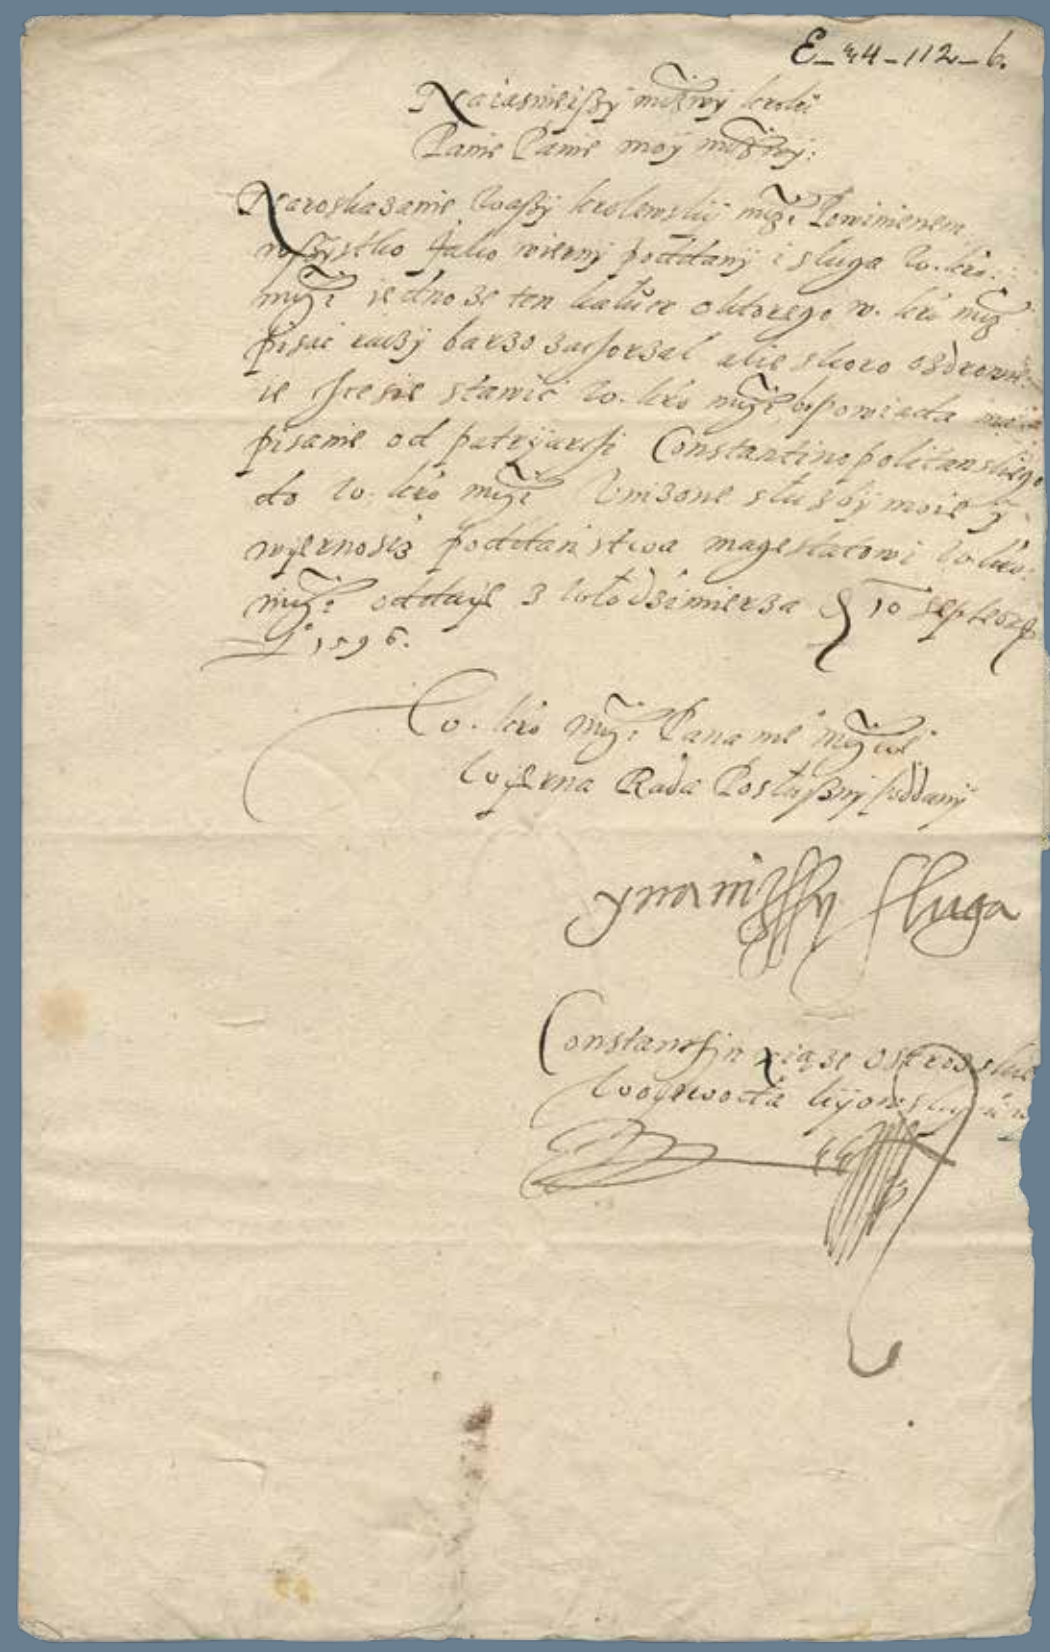 E-44-112-6.
Naiasnieiszÿ mczÿwÿ krolu
Panie Panie moÿ mczÿwÿ:
Naroskazanie waszÿ krolewskiÿ mcz: Powinienem
wszÿstko Jako wiernÿ poddanÿ i sluga w. kro.
mczi jedno ze ten ktorego w. kro mcz
pisac raczÿ barzo zachorzal alie skoro
ie stawic w. kro mczi powiada
pisanie od patrÿarchi Constantinopolitanskiego
do w. kro mczi Vnizone sluzbÿ moie ÿ
wÿernosc poddanstwa magestatowi w. kro:
mczi oddaÿe z Wlodzimierza 10 septebr
1596.
W. kro mczi Pana me mcziwe
Wÿerna Rada Poslusznÿ Poddanÿ
ÿ naniszssÿ sluga
Constantÿn xiąze ostrozskie
Woÿewoda kÿowskÿ